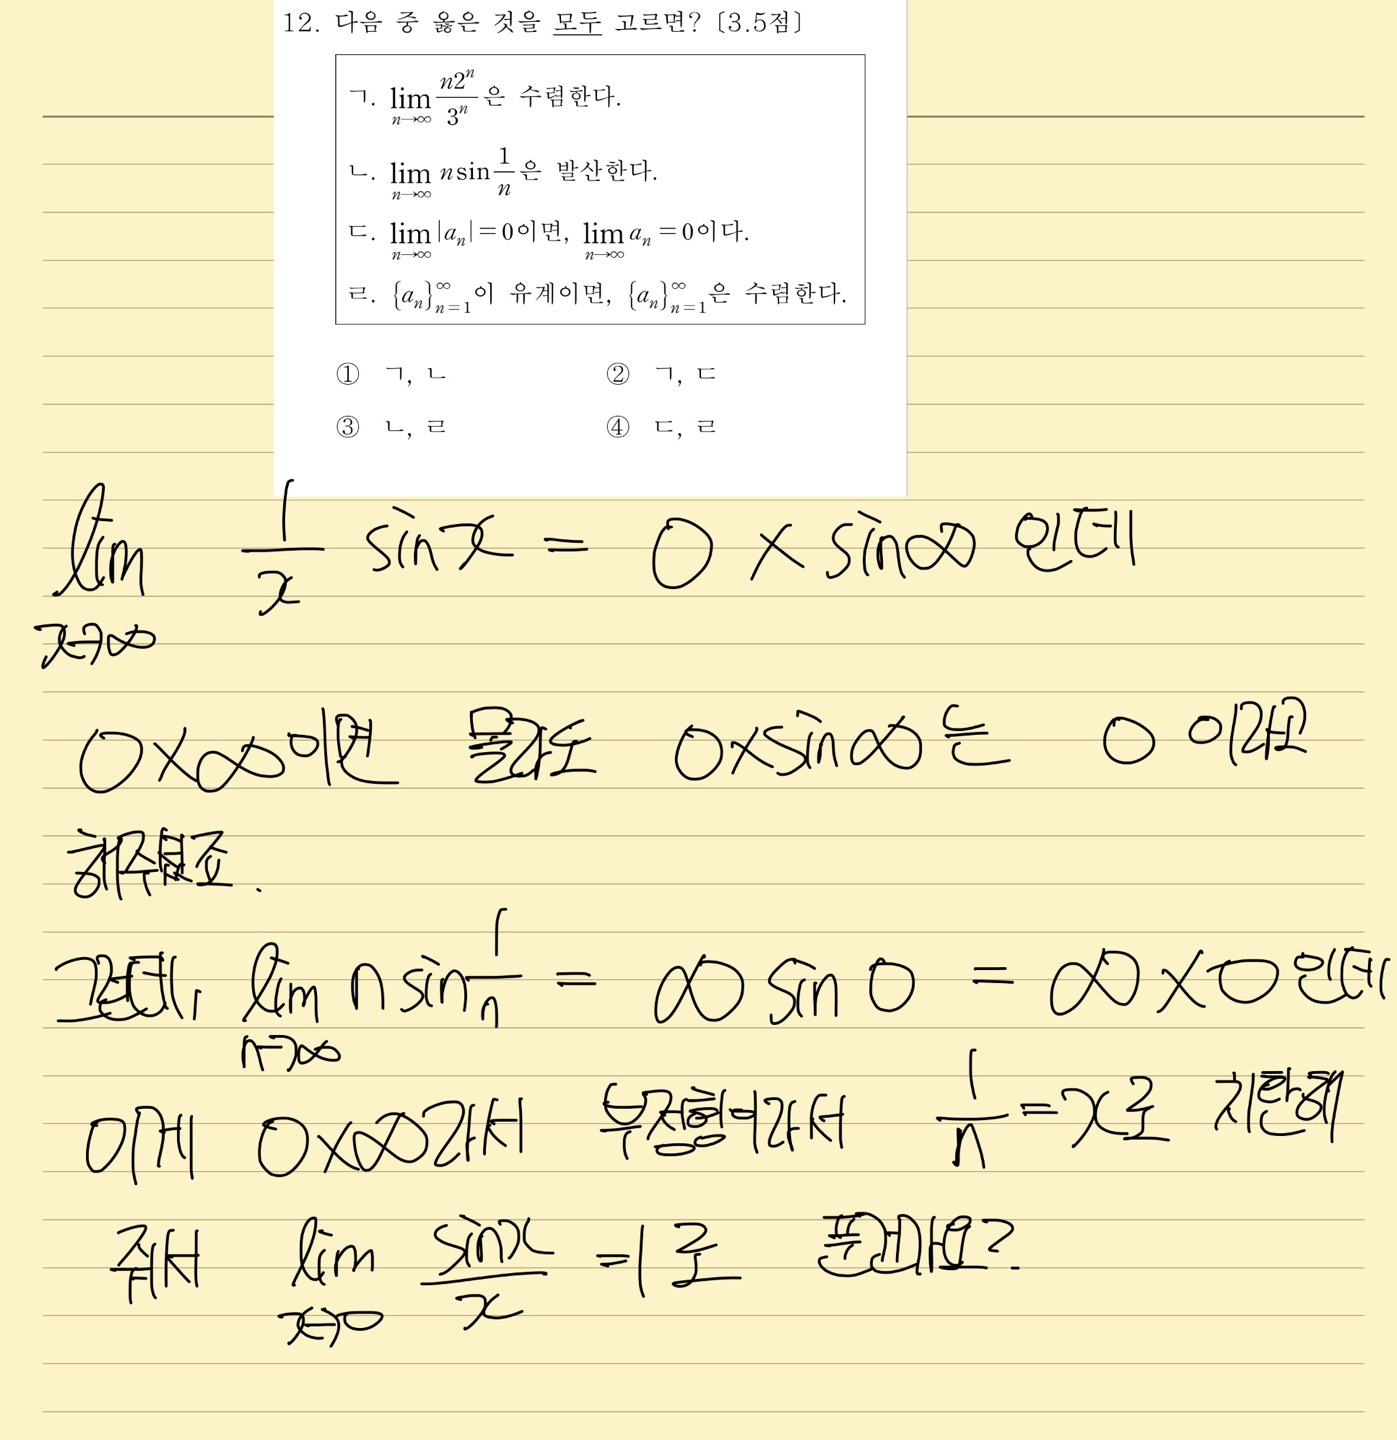 12. 다음 중 옳은 것을 모두 고르면? [3.5점]
ㄱ. lim n→∞ n2ⁿ/3ⁿ은 수렴한다.
ㄴ. lim n→∞ n sin 1/n은 발산한다.
ㄷ. lim n→∞ |aₙ| = 0이면, lim n→∞ aₙ = 0이다.
ㄹ. {aₙ}∞n=1이 유계이면, {aₙ}∞n=1은 수렴한다.
① ㄱ, ㄴ ② ㄱ, ㄷ
③ ㄴ, ㄹ ④ ㄷ, ㄹ
lim x→∞ 1/x sinx = 0 × sin∞ 인데
0×∞이면 몰라도 0×sin∞는 0 이라고
해주셨죠.
그런데, lim n→∞ n sin 1/n = ∞ sin 0 = ∞ × 0 인데
이게 0×∞라서 부정형이라서 1/n = x로 치환해
줘서 lim x→0 sinx/x = 1 로 푼건가요?